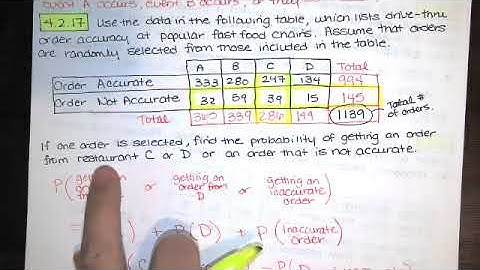 event A occurs, event B occurs, or they
4.2.17 Use the data in the following table, which lists drive-thru
order accuracy at popular fast food chains. Assume that orders
are randomly selected from those included in the table.
A B C D Total
Order Accurate 333 280 247 134 994
Order Not Accurate 32 59 39 15 145
Total 365 339 286 149 1139
Total # of orders.
If one order is selected, find the probability of getting an order
from restaurant C or D or an order that is not accurate.
P( getting an or getting an order from D or getting an inaccurate order )
= ) + P(D) + P (inaccurate order)